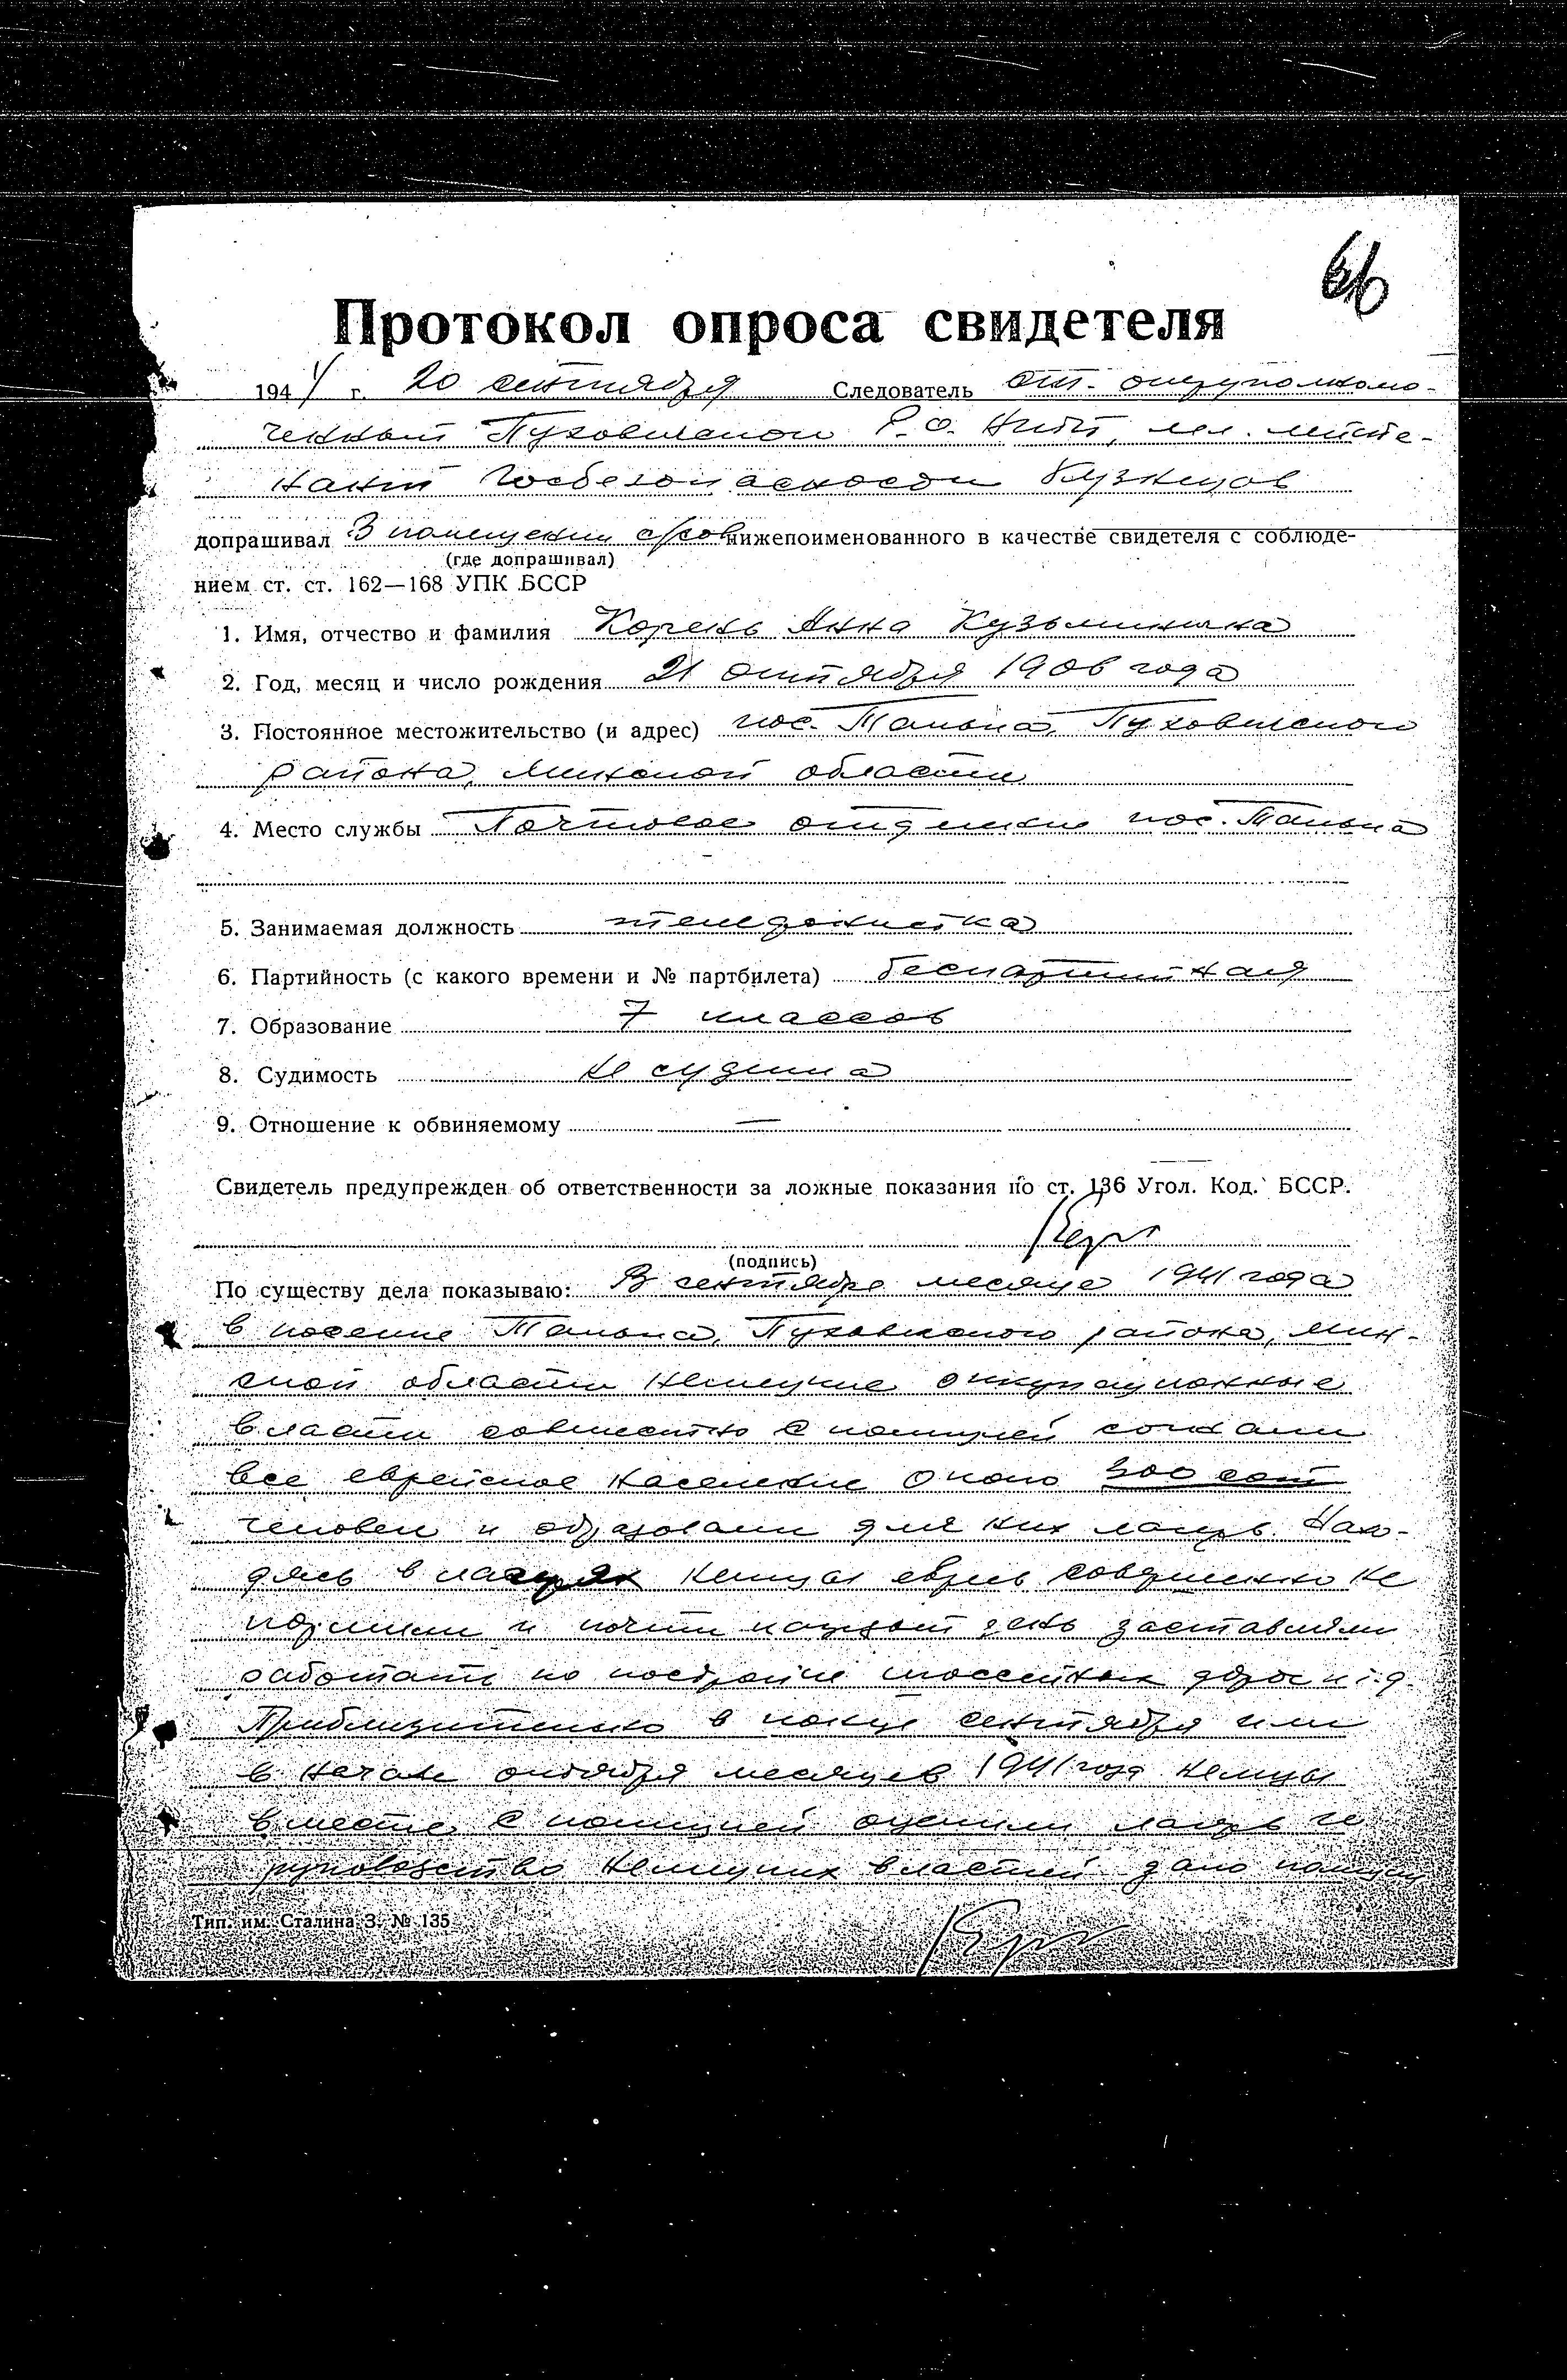 66
Протокол опроса свидетеля
1944 г. 20 сентября Следователь Опер. оперуполномо-
ченный Пуховичского Р.О. НКГБ, мл. лейте-
нант Госбезопасности Кузнецов
допрашивал В помещении нижепоименованного в качестве свидетеля с соблюде-
(где допрашивал)
нием ст. ст. 162—168 УПК БССР
1. Имя, отчество и фамилия Корень Анна Кузьминична
2. Год, месяц и число рождения 21 октября 1906 года
3. Постоянное местожительство (и адрес) пос. Талька, Пуховичского
района, Минской области
4. Место службы Почтовое отделение пос. Талька
5. Занимаемая должность телефонистка
6. Партийность (с какого времени и № партбилета) беспартийная
7. Образование 7 классов
8. Судимость не судима
9. Отношение к обвиняемому —
Свидетель предупрежден об ответственности за ложные показания по ст. 136 Угол. Код. БССР.
(подпись)
По существу дела показываю: В сентябре месяце 1941 года
в поселке Талька, Пуховичского района, Мин-
ской области немецкие оккупационные
власти совместно с полицией согнали
все еврейское население около 300
человек и образовали для них лагерь. Нахо-
дясь в лагерях немцы евреев совершенно не
кормили и почти каждый день заставляли
работать по постройке шоссейных дорог и т.д.
Приблизительно в конце сентября или
в начале октября месяцев 1941 года немцы
вместе с полицией оцепили лагерь
руководство немецких властей дало
Тип. им. Сталина З. № 135